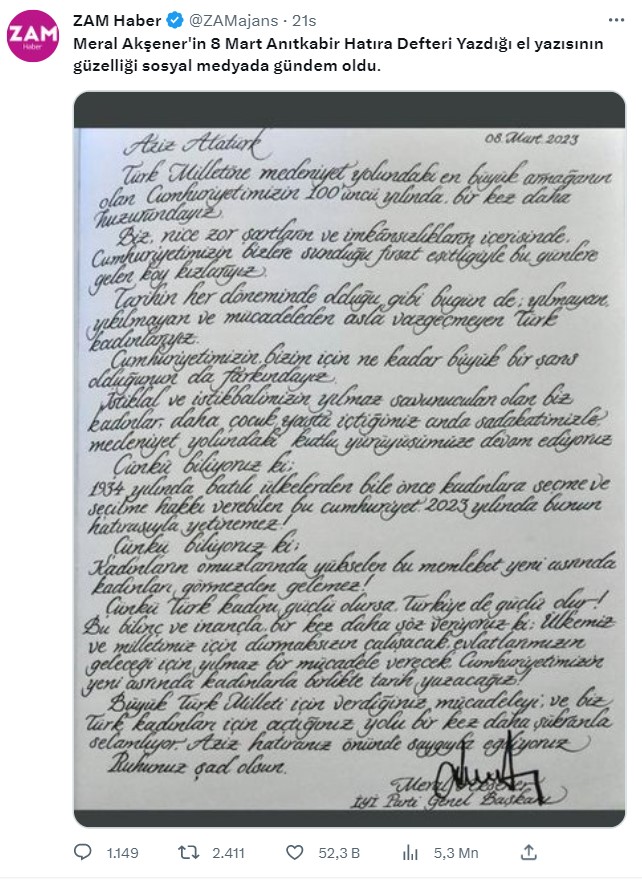 ZAM Haber @ZAMajans · 21s
Meral Akşener'in 8 Mart Anıtkabir Hatıra Defteri Yazdığı el yazısının
güzelliği sosyal medyada gündem oldu.
ZAM
Haber
Aziz Atatürk
08.Mart.2023
Türk Milletine medeniyet yolundaki en büyük armağanın
olan Cumhuriyetimizin 100'üncü yılında, bir kez daha
huzurundayız.
Biz, nice zor şartların ve imkânsızlıkların içerisinde,
Cumhuriyetimizin bizlere sunduğu fırsat eşitliğiyle bu günlere
gelen köy kızlarıyız.
Tarihin her döneminde olduğu gibi bugün de; yılmayan,
yıkılmayan ve mücadeleden asla vazgeçmeyen Türk
kadınlarıyız.
Cumhuriyetimizin, bizim için ne kadar büyük bir şans
olduğunun da farkındayız.
İstiklal ve istikbalimizin yılmaz savunucuları olan biz
kadınlar, daha çocuk yaşta içtiğimiz anda sadakatimizle,
medeniyet yolundaki kutlu yürüyüşümüze devam ediyoruz
Çünkü biliyoruz ki;
1934 yılında batılı ülkelerden bile önce kadınlara seçme ve
seçilme hakkı verebilen bu cumhuriyet 2023 yılında bunun
hatırasıyla yetinemez!
Çünkü biliyoruz ki;
Kadınların omuzlarında yükselen bu memleket yeni asrında
kadınları, görmezden gelemez!
Çünkü Türk kadını güçlü olursa, Türkiye de güçlü olur!
Bu bilinç ve inançla, bir kez daha söz veriyoruz ki; Ülkemiz
ve milletimiz için durmaksızın çalışacak, evlatlarımızın
geleceği için yılmaz bir mücadele verecek, Cumhuriyetimizin
yeni asrında kadınlarla birlikte tarih yazacağız!
Büyük Türk Milleti için verdiğiniz mücadeleyi; ve biz,
Türk kadınları için açtığınız yolu bir kez daha şükranla
selamlıyor, Aziz hatıranız önünde saygıyla eğiliyoruz
Ruhunuz şad olsun.
Meral Akşener
İYİ Parti Genel Başkanı
1.149 2.411 52,3 B 5,3 Mn